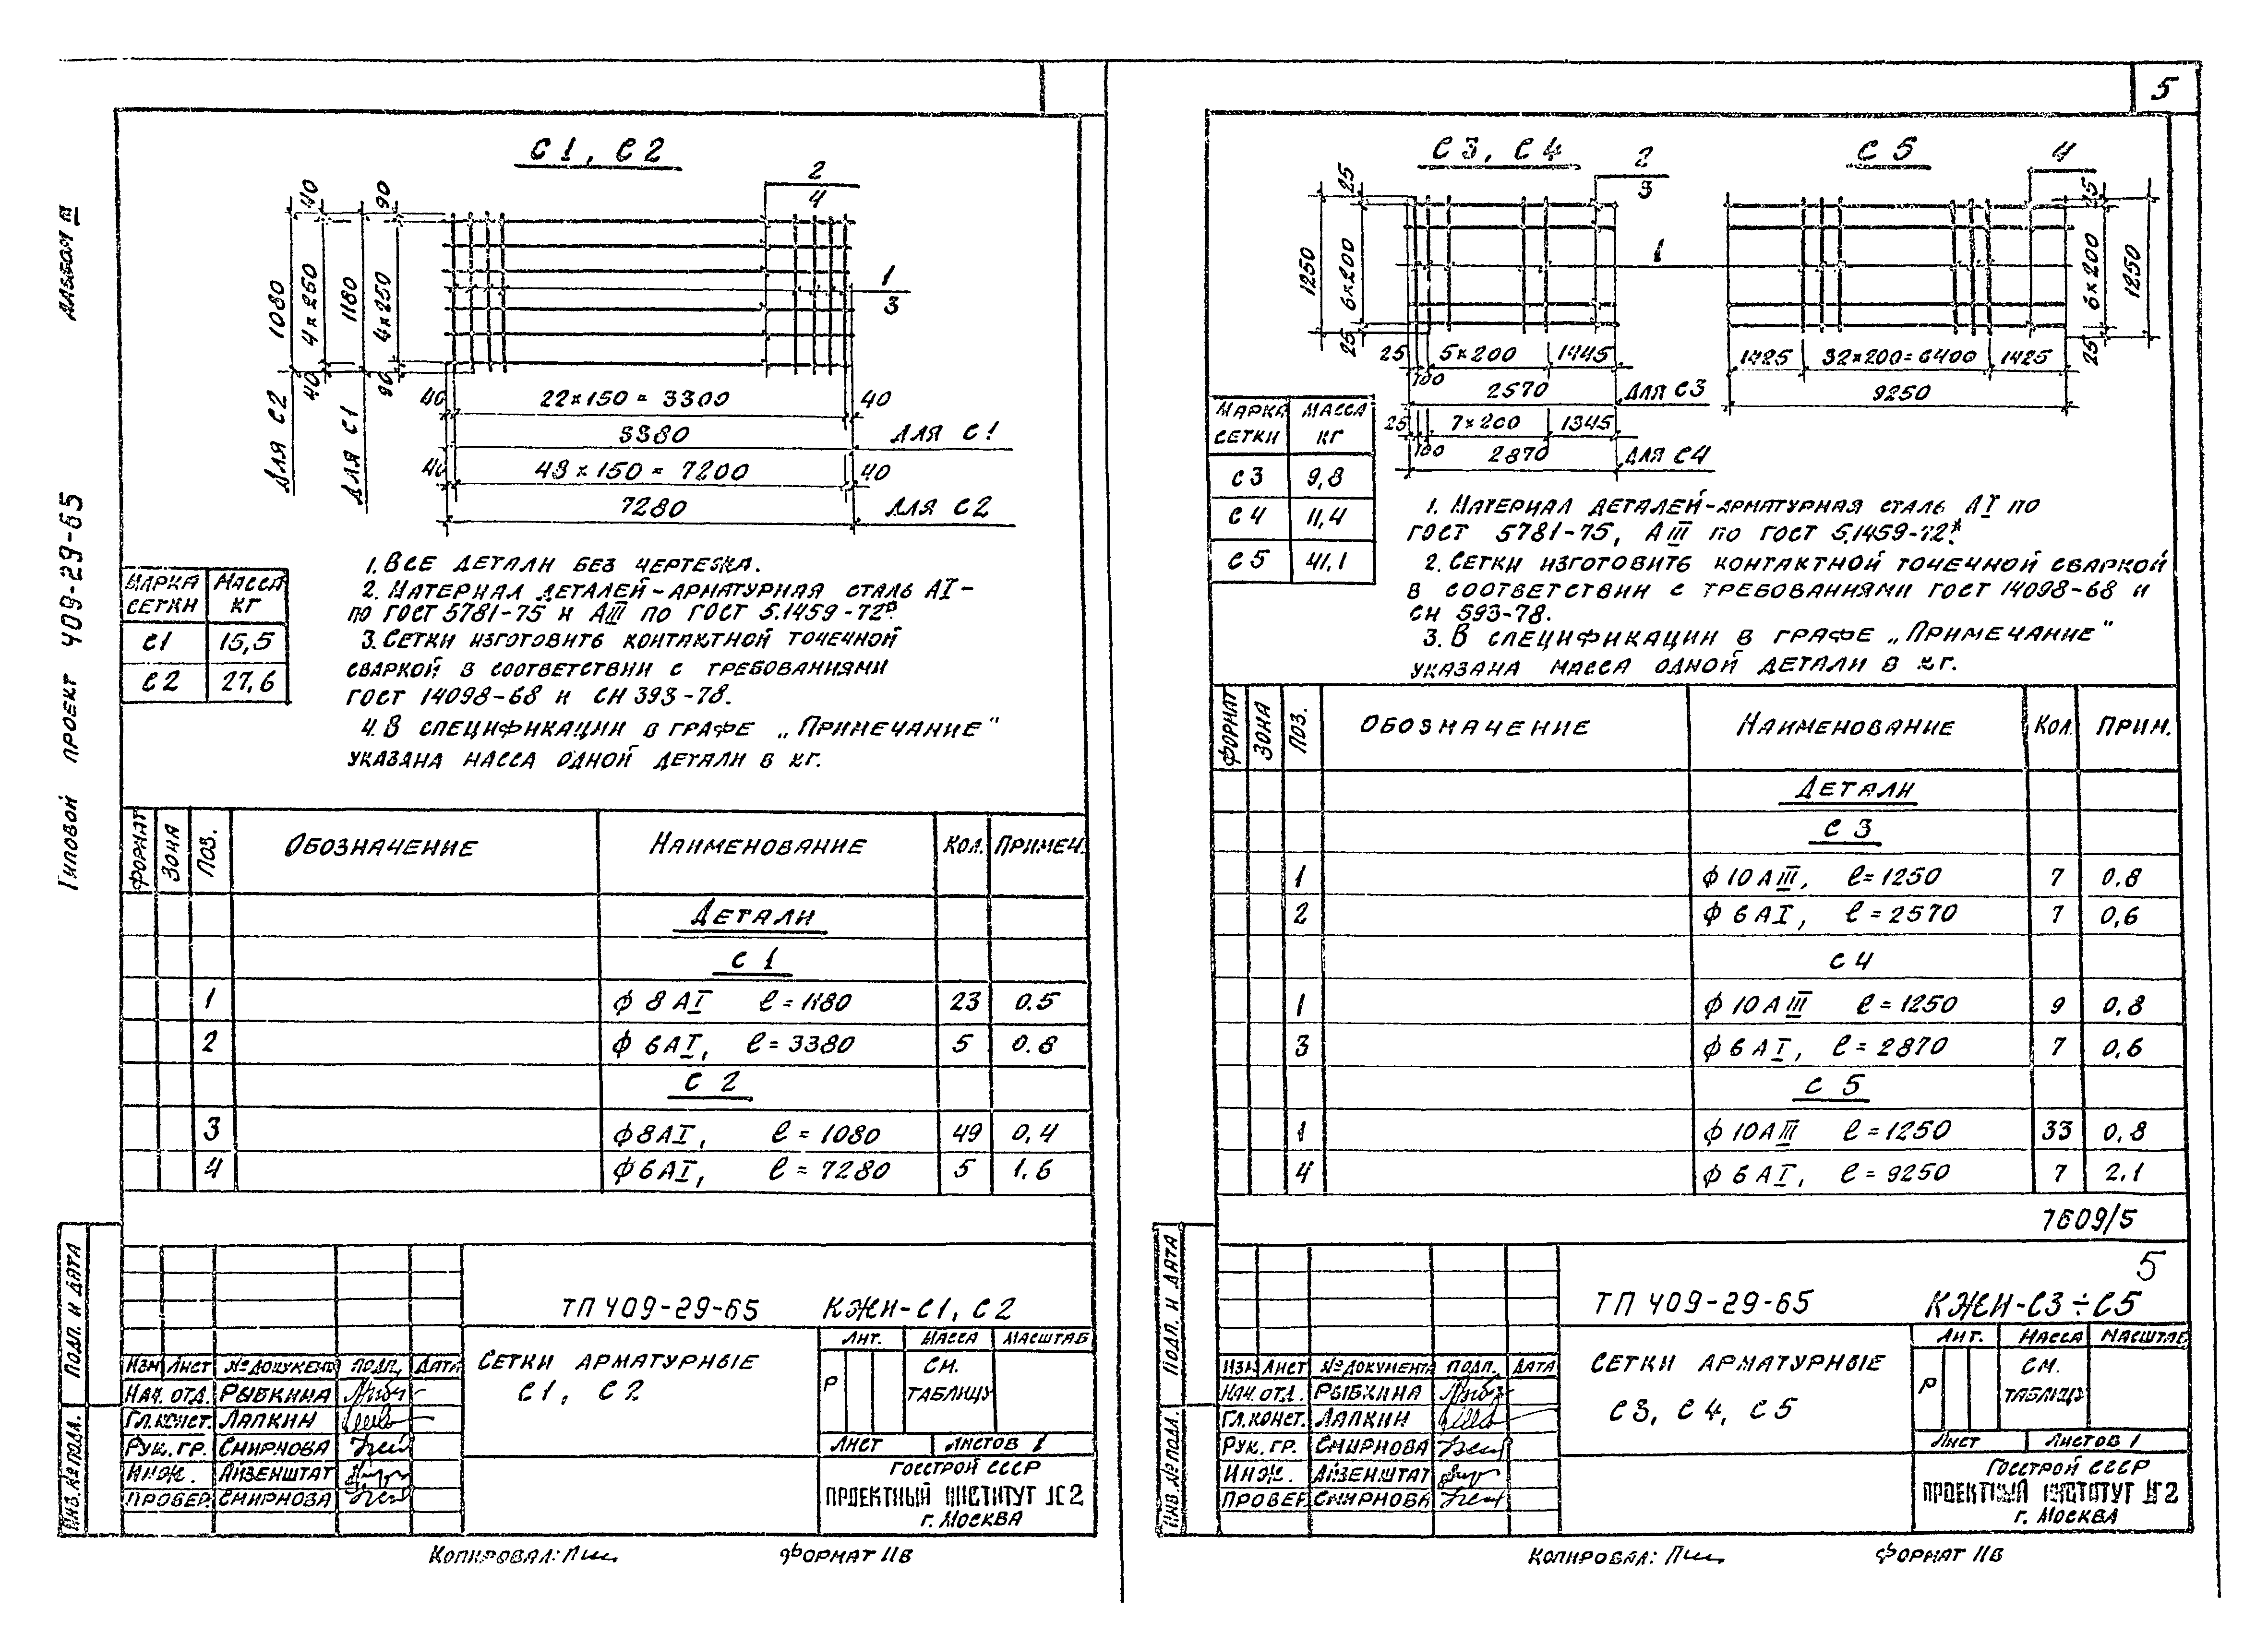 5
Альбом III
Типовой проект 409-29-65
С1, С2
2
4
1
3
40
4×250
40
1080
Для С2
90
4×250
90
1180
Для С1
40
22×150 = 3300
40
3380
Для С1
40
48×150 = 7200
40
7280
Для С2
Марка сетки
Масса кг
С1 15,5
С2 27,6
1. Все детали без чертежа.
2. Материал деталей-арматурная сталь АI-
по ГОСТ 5781-75 и АIII по ГОСТ 5.1459-72*
3. Сетки изготовить контактной точечной
сваркой в соответствии с требованиями
ГОСТ 14098-68 и СН 393-78.
4. В спецификации в графе „Примечание"
указана масса одной детали в кг.
Формат Зона Поз. Обозначение Наименование Кол. Примеч.
Детали
С 1
1 ф 8 АI l = 1180 23 0.5
2 ф 6 АI, l = 3380 5 0.8
С 2
3 ф 8 АI, l = 1080 49 0,4
4 ф 6 АI, l = 7280 5 1.6
ТП 409-29-65 КЖИ-С1, С2
Изм Лист № документ Подп. Дата
Нач. отд. Рыбкина
Гл.конст. Лапкин
Рук. гр. Смирнова
Инж. Айзенштат
Провер. Смирнова
Сетки арматурные
С1, С2
Лит. Масса Масштаб
Р См. таблицу
Лист Листов 1
Госстрой СССР
Проектный институт № 2
г. Москва
Подп. и дата
Инв. № подл.
Копировал:
Формат 11в
С3, С4
2
3
1
25
6×200
25
1250
25
100
5×200
1445
2570
Для С3
25
100
7×200
1345
2870
Для С4
С 5
4
25
6×200
25
1250
1425
32×200=6400
1425
9250
Марка сетки
Масса кг
С3 9,8
С4 11,4
С5 41,1
1. Материал деталей-арматурная сталь АI по
ГОСТ 5781-75, АIII по ГОСТ 5.1459-72*.
2. Сетки изготовить контактной точечной сваркой
в соответствии с требованиями ГОСТ 14098-68 и
СН 593-78.
3. В спецификации в графе „Примечание"
указана масса одной детали в кг.
Формат Зона Поз. Обозначение Наименование Кол. Прим.
Детали
С 3
1 ф 10 АIII, l = 1250 7 0.8
2 ф 6 АI, l = 2570 7 0,6
С 4
1 ф 10 АIII l = 1250 9 0,8
3 ф 6 АI, l = 2870 7 0,6
С 5
1 ф 10 АIII l = 1250 33 0,8
4 ф 6 АI, l = 9250 7 2,1
7609/5
5
ТП 409-29-65 КЖИ-С3÷С5
Изм Лист № документа Подп. Дата
Нач. отд. Рыбкина
Гл.конст. Лапкин
Рук. гр. Смирнова
Инж. Айзенштат
Провер. Смирнова
Сетки арматурные
С3, С4, С5
Лит. Масса Масштаб
Р См. таблицу
Лист Листов 1
Госстрой СССР
Проектный институт № 2
г. Москва
Подп. и дата
Инв. № подл.
Копировал:
Формат 11в